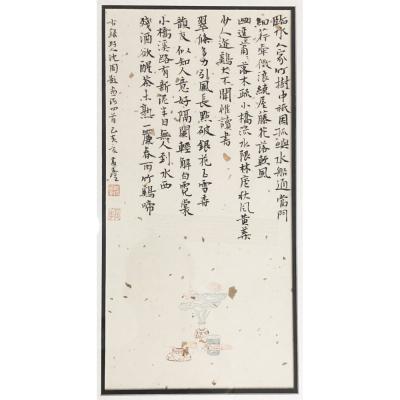 臨水人家竹樹中祇因孤嶼水船通當門
細荇牽微浪繞屋藤花落軟風
山逕蕭落木疏小橋流水限林廬秋風黃葉
少人迹雞犬不聞惟讀書
翠條多力引風長點破銀花玉雪香
韻友似知人意好隔闌輕解白霓裳
小橋溪路有新泥半日無人到水西
殘酒欲醒茶未熟一簾春雨竹雞啼
人沈周題畫詩四首己亥